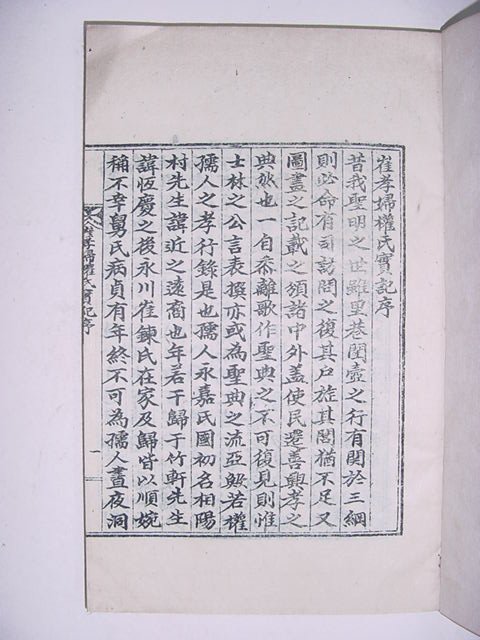 崔孝婦權氏實記序
昔我聖明之世雖里巷閨壼之行有關於三綱
則必命有司訪問之復其户旌其閭猶不足又
圖畫之記載之頒諸中外盖使民遷善興孝之
典然也一自黍離歌作聖典之不可復見則惟
士林之公言表撰亦或為聖典之流亞歟若權
孺人之孝行錄是也孺人永嘉氏國初名相陽
村先生諱近之遠裔也年若干歸于竹軒先生
諱恆慶之後永川崔鍊氏在家及歸皆以順婉
稱不幸舅氏病貞有年終不可為孺人晝夜洞
崔孝婦權氏實記序
一